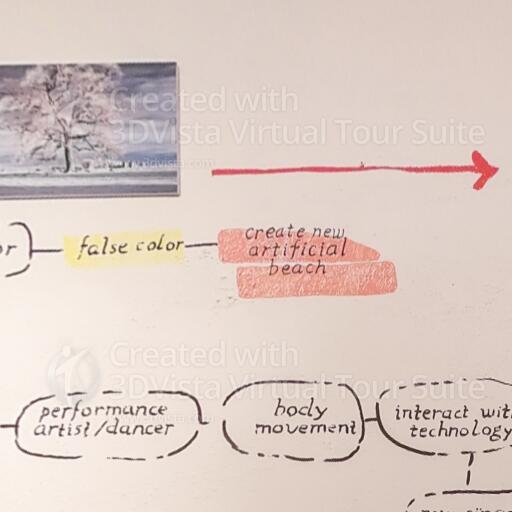 Created with
3DVista Virtual Tour Suite
www.3dvista.com
or
false color
create new
artificial
beach
Created with
3DVista Virtual Tour Suite
performance
artist/dancer
body
movement
interact with
technology